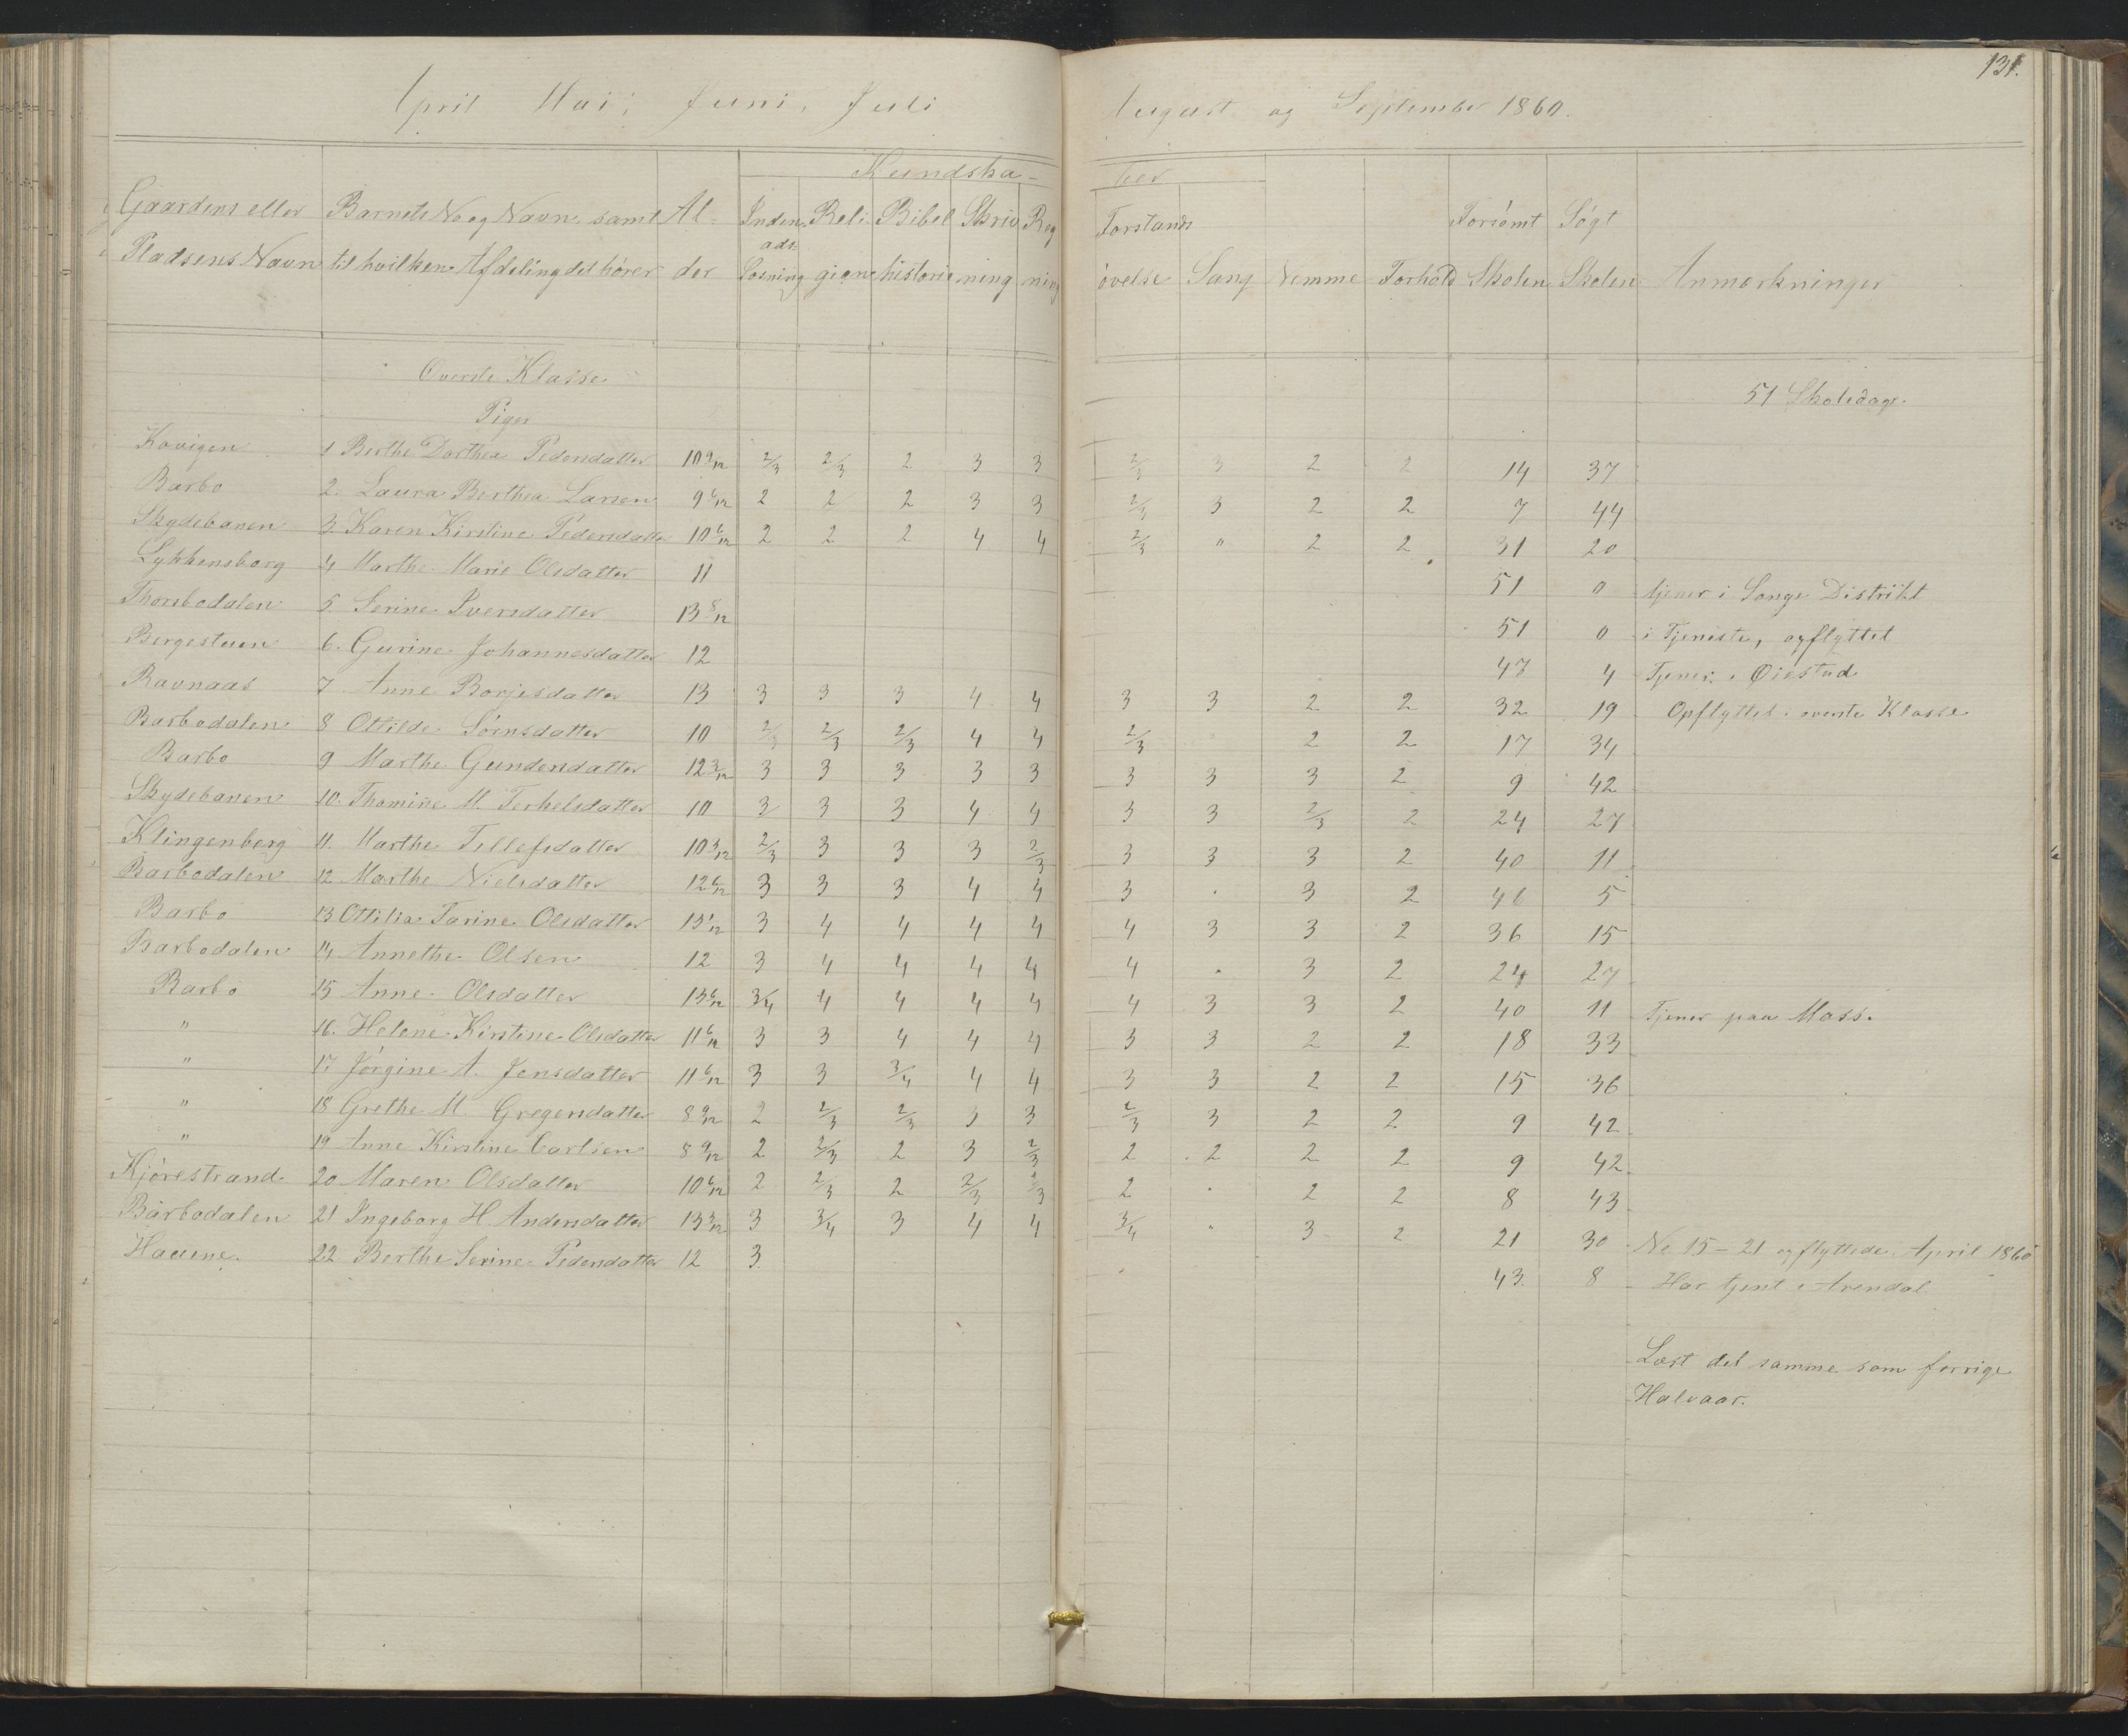 131.
April Mai, Juni, Juli August og September 1860.
Kundska- ber
Gaardens eller Pladsens Navn | Barnets No og Navn samt til hvilken Afdeling det hører | Al- der | Inden- ads- læsning | Reli- gion | Bibel historie | Skriv ning | Reg ning | Forstands øvelse | Sang | Nemme | Forhold | Forsømt Skolen | Søgt Skolen | Anmærkninger
Øverste Klasse
51 Skoledage.
Piger
Kovigen 1 Berthe Dorthea Pedersdatter 10 9/12 2/3 2/3 2 3 3 2/3 3 2 2 14 37
Barbo 2. Laura Berthea Larsen 9 6/12 2 2 2 3 3 2/3 3 2 2 7 44
Skydebanen 3. Karen Kirstine Pedersdatter 10 6/12 2 2 2 4 4 2/3 " 2 2 31 20
Lykkensborg 4 Marthe Marie Olsdatter 11 51 0 tjener i Songe Distrikt
Thorsbodalen 5. Serine Iversdatter 13 8/12 51 0 i Tjeneste, opflyttet
Bergestuen 6. Gurine Johannesdatter 12 47 4 Tjener i Øiestad
Ravnaas 7 Anne Børjesdatter 13 3 3 3 4 4 3 3 2 2 32 19 Opflyttet i øverste Klasse
Barbodalen 8 Ottilde Sørnsdatter 10 2/3 2/3 2/3 4 4 2/3 2 2 17 34
Barbo 9 Marthe Gundersdatter 12 3/12 3 3 3 3 3 3 3 3 2 9 42
Skydebanen 10. Thomine M. Terkelsdatter 10 3 3 3 4 4 3 3 2/3 2 24 27
Klingenberg 11. Marthe Tellefsdatter 10 3/12 2/3 3 3 3 2/3 3 3 3 2 40 11
Barbodalen 12 Marthe Nielsdatter 12 6/12 3 3 3 4 4 3 . 3 2 46 5
Barbo 13 Ottilia Tarine Olsdatter 13 1/12 3 4 4 4 4 4 3 3 2 36 15
Barbodalen 14 Annethe Olsen 12 3 4 4 4 4 4 . 3 2 24 27
Barbo 15 Anne Olsdatter 13 6/12 3/4 4 4 4 4 4 3 3 2 40 11 Tjener paa Moss.
" 16. Helene Kirstine Olsdatter 11 6/12 3 3 4 4 4 3 3 2 2 18 33
" 17. Jørgine A. Jensdatter 11 6/12 3 3 3/4 4 4 3 3 2 2 15 36
" 18 Grethe M. Gregersdatter 8 9/12 2 2/3 2/3 3 3 2/3 3 2 2 9 42
" 19 Anne Kirstine Carlsen 8 9/12 2 2/3 2 3 2/3 2 2 2 2 9 42
Kjørestrand 20 Maren Olsdatter 10 6/12 2 2/3 2 2/3 2/3 2 . 2 2 8 43
Barbodalen 21 Ingeborg H. Andersdatter 13 3/12 3 3/4 3 4 4 3/4 . 3 2 21 30 No 15–21 opflyttede April 1860
Hauene. 22 Berthe Serine Pedersdatter 12 3. 43. 8 Har tjent i Arendal
Læst det samme som forrige
Halvaar.